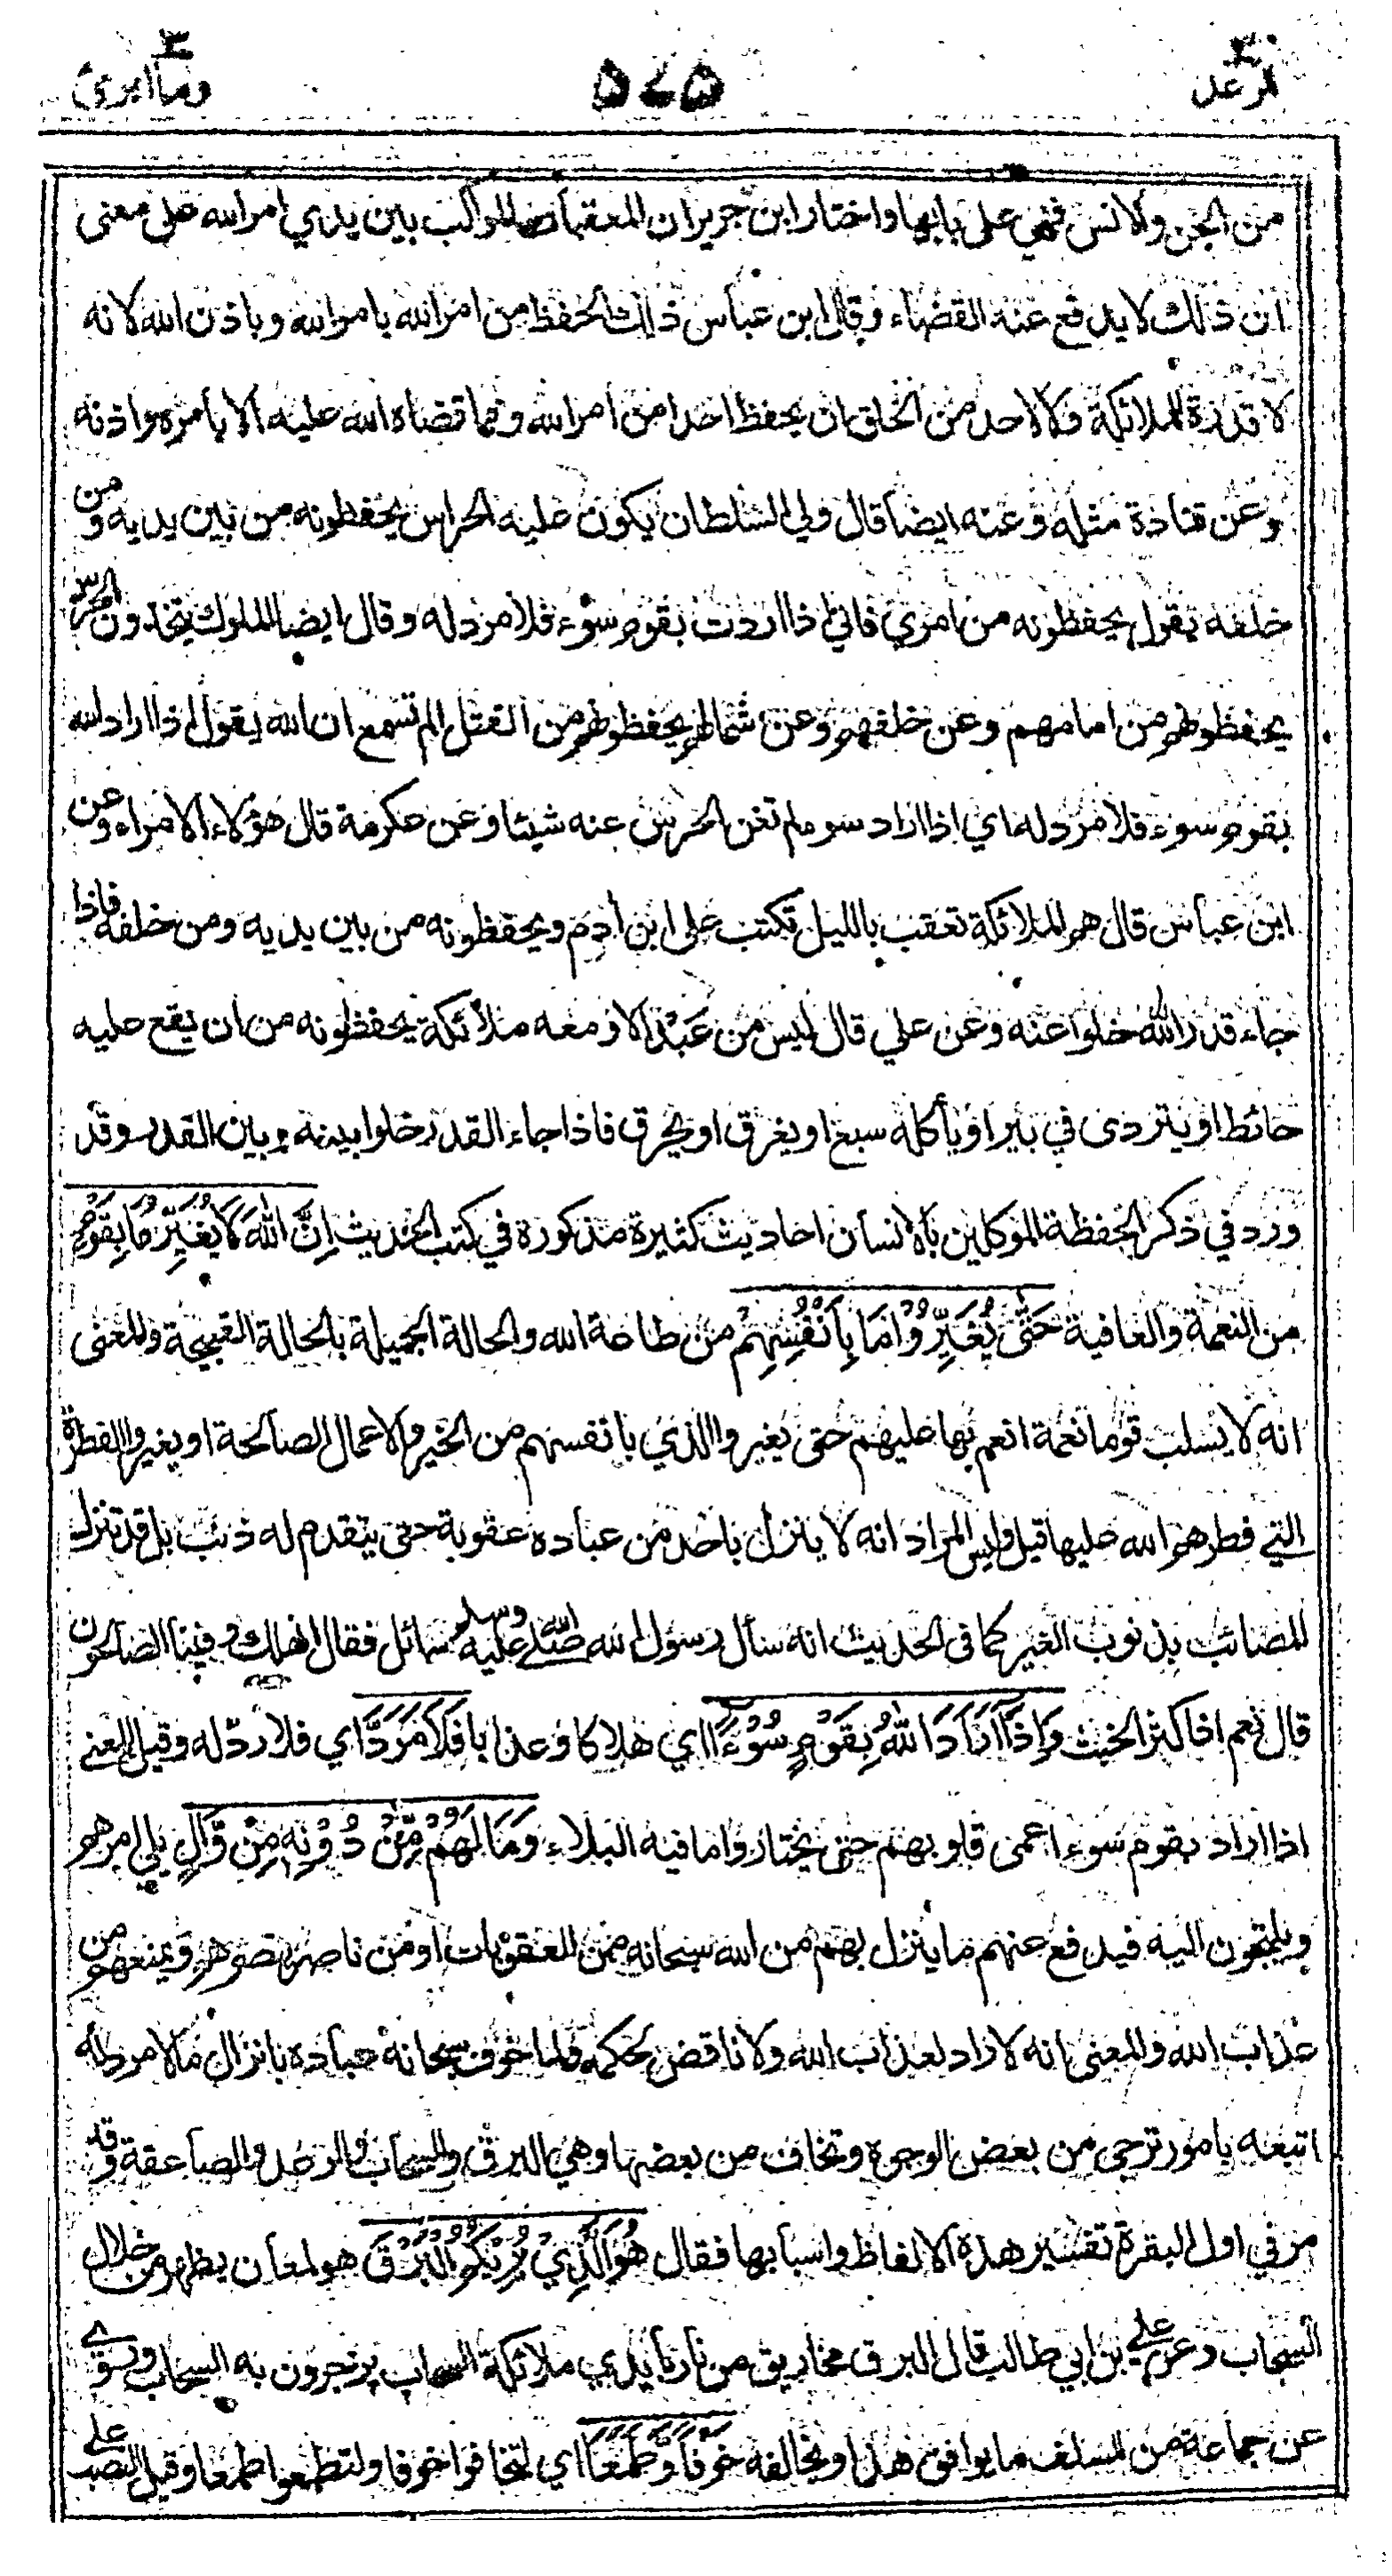 وما ابرئ ٣ ٥٧٥ الرعد ٣
من الجن والانس فهي على بابها واختار ابن جرير ان المعقبات المواكب بين يدي امرالله على معنى
ان ذلك لا يدفع عنه القضاء وقال ابن عباس ذلك الحفظ من امرالله بامرالله وباذن الله لانه
لا قدرة للملائكة ولا لاحد من الخلق ان يحفظ احدا من امرالله وفما قضاه الله عليه الا بامره واذنه
وعن قتادة مثله وعنه ايضا قال ولي السلطان يكون عليه الحراس يحفظونه من بين يديه ومن
خلفه يقول يحفظونه من امري فاني اذا اردت بقوم سوء فلا مرد له وقال ايضا الملوك يتخذون الحرس
يحفظونهم من امامهم وعن خلفهم وعن شمالهم يحفظونهم من القتل الم تسمع ان الله يقول اذا اراد الله
بقوم سوء فلا مرد له اي اذا اراد سوء لم تغن الحرس عنه شيئا وعن عكرمة قال هؤلاء الامراء وعن
ابن عباس قال هم الملائكة تعقب بالليل تكتب على ابن ادم ويحفظونه من بين يديه ومن خلفه فاذا
جاء قدر الله خلوا عنه وعن علي قال ليس من عبد الا ومعه ملائكة يحفظونه من ان يقع عليه
حائط او يتردى في بير او يأكله سبع او يغرق او يحرق فاذا جاء القدر خلوا بينه وبين القدر وقد
ورد في ذكر الحفظة الموكلين بالانسان احاديث كثيرة مذكورة في كتب الحديث اِنَّ اللهَ لَا يُغَيِّرُ مَا بِقَوْمٍ
من النعمة والعافية حَتّٰى يُغَيِّرُوْا مَا بِاَنْفُسِهِمْ من طاعة الله والحالة الجميلة بالحالة القبيحة والمعنى
انه لا يسلب قوما نعمة انعم بها عليهم حتى يغيروا الذي بانفسهم من الخير والاعمال الصالحة او يغيروا الفطرة
التي فطرهم الله عليها قيل وليس المراد انه لا ينزل باحد من عباده عقوبة حتى يتقدم له ذنب بل قد تنزل
المصائب بذنوب الغير كما في الحديث انه سأل رسول الله صلى الله عليه وسلم سائل فقال انهلك وفينا الصالحون
قال نعم اذا كثر الخبث وَاِذَا اَرَادَ اللهُ بِقَوْمٍ سُوْءًا اي هلاكا وعذابا فَلَا مَرَدَّ اي فلا رد له وقيل المعنى
اذا اراد بقوم سوء اعمى قلوبهم حتى يختاروا ما فيه البلاء وَمَا لَهُمْ مِّنْ دُوْنِهِ مِنْ وَّالٍ يلي امرهم
ويلتجون اليه فيدفع عنهم ما ينزل بهم من الله سبحانه من العقوبات او من ناصر ينصرهم ويمنعهم من
عذاب الله والمعنى انه لا راد لعذاب الله ولا ناقض لحكمه ولما خوف سبحانه عباده بانزال ما لا مرد له
اتبعه بامور ترجى من بعض الوجوه وتخاف من بعضها وهي البرق والسحاب والرعد والصاعقة وقد
مر في اول البقرة تفسير هذه الالفاظ واسبابها فقال هُوَ الَّذِيْ يُرِيْكُمُ الْبَرْقَ هو لمعان يظهر من خلال
السحاب وعن علي بن ابي طالب قال البرق مخاريق من نار بايدي ملائكة السحاب يزجرون به السحاب وروي
عن جماعة من السلف ما يوافق هذا ويخالفه خَوْفًا وَّطَمَعًا اي لتخافوا خوفا ولتطمعوا طمعا وقيل النصب على